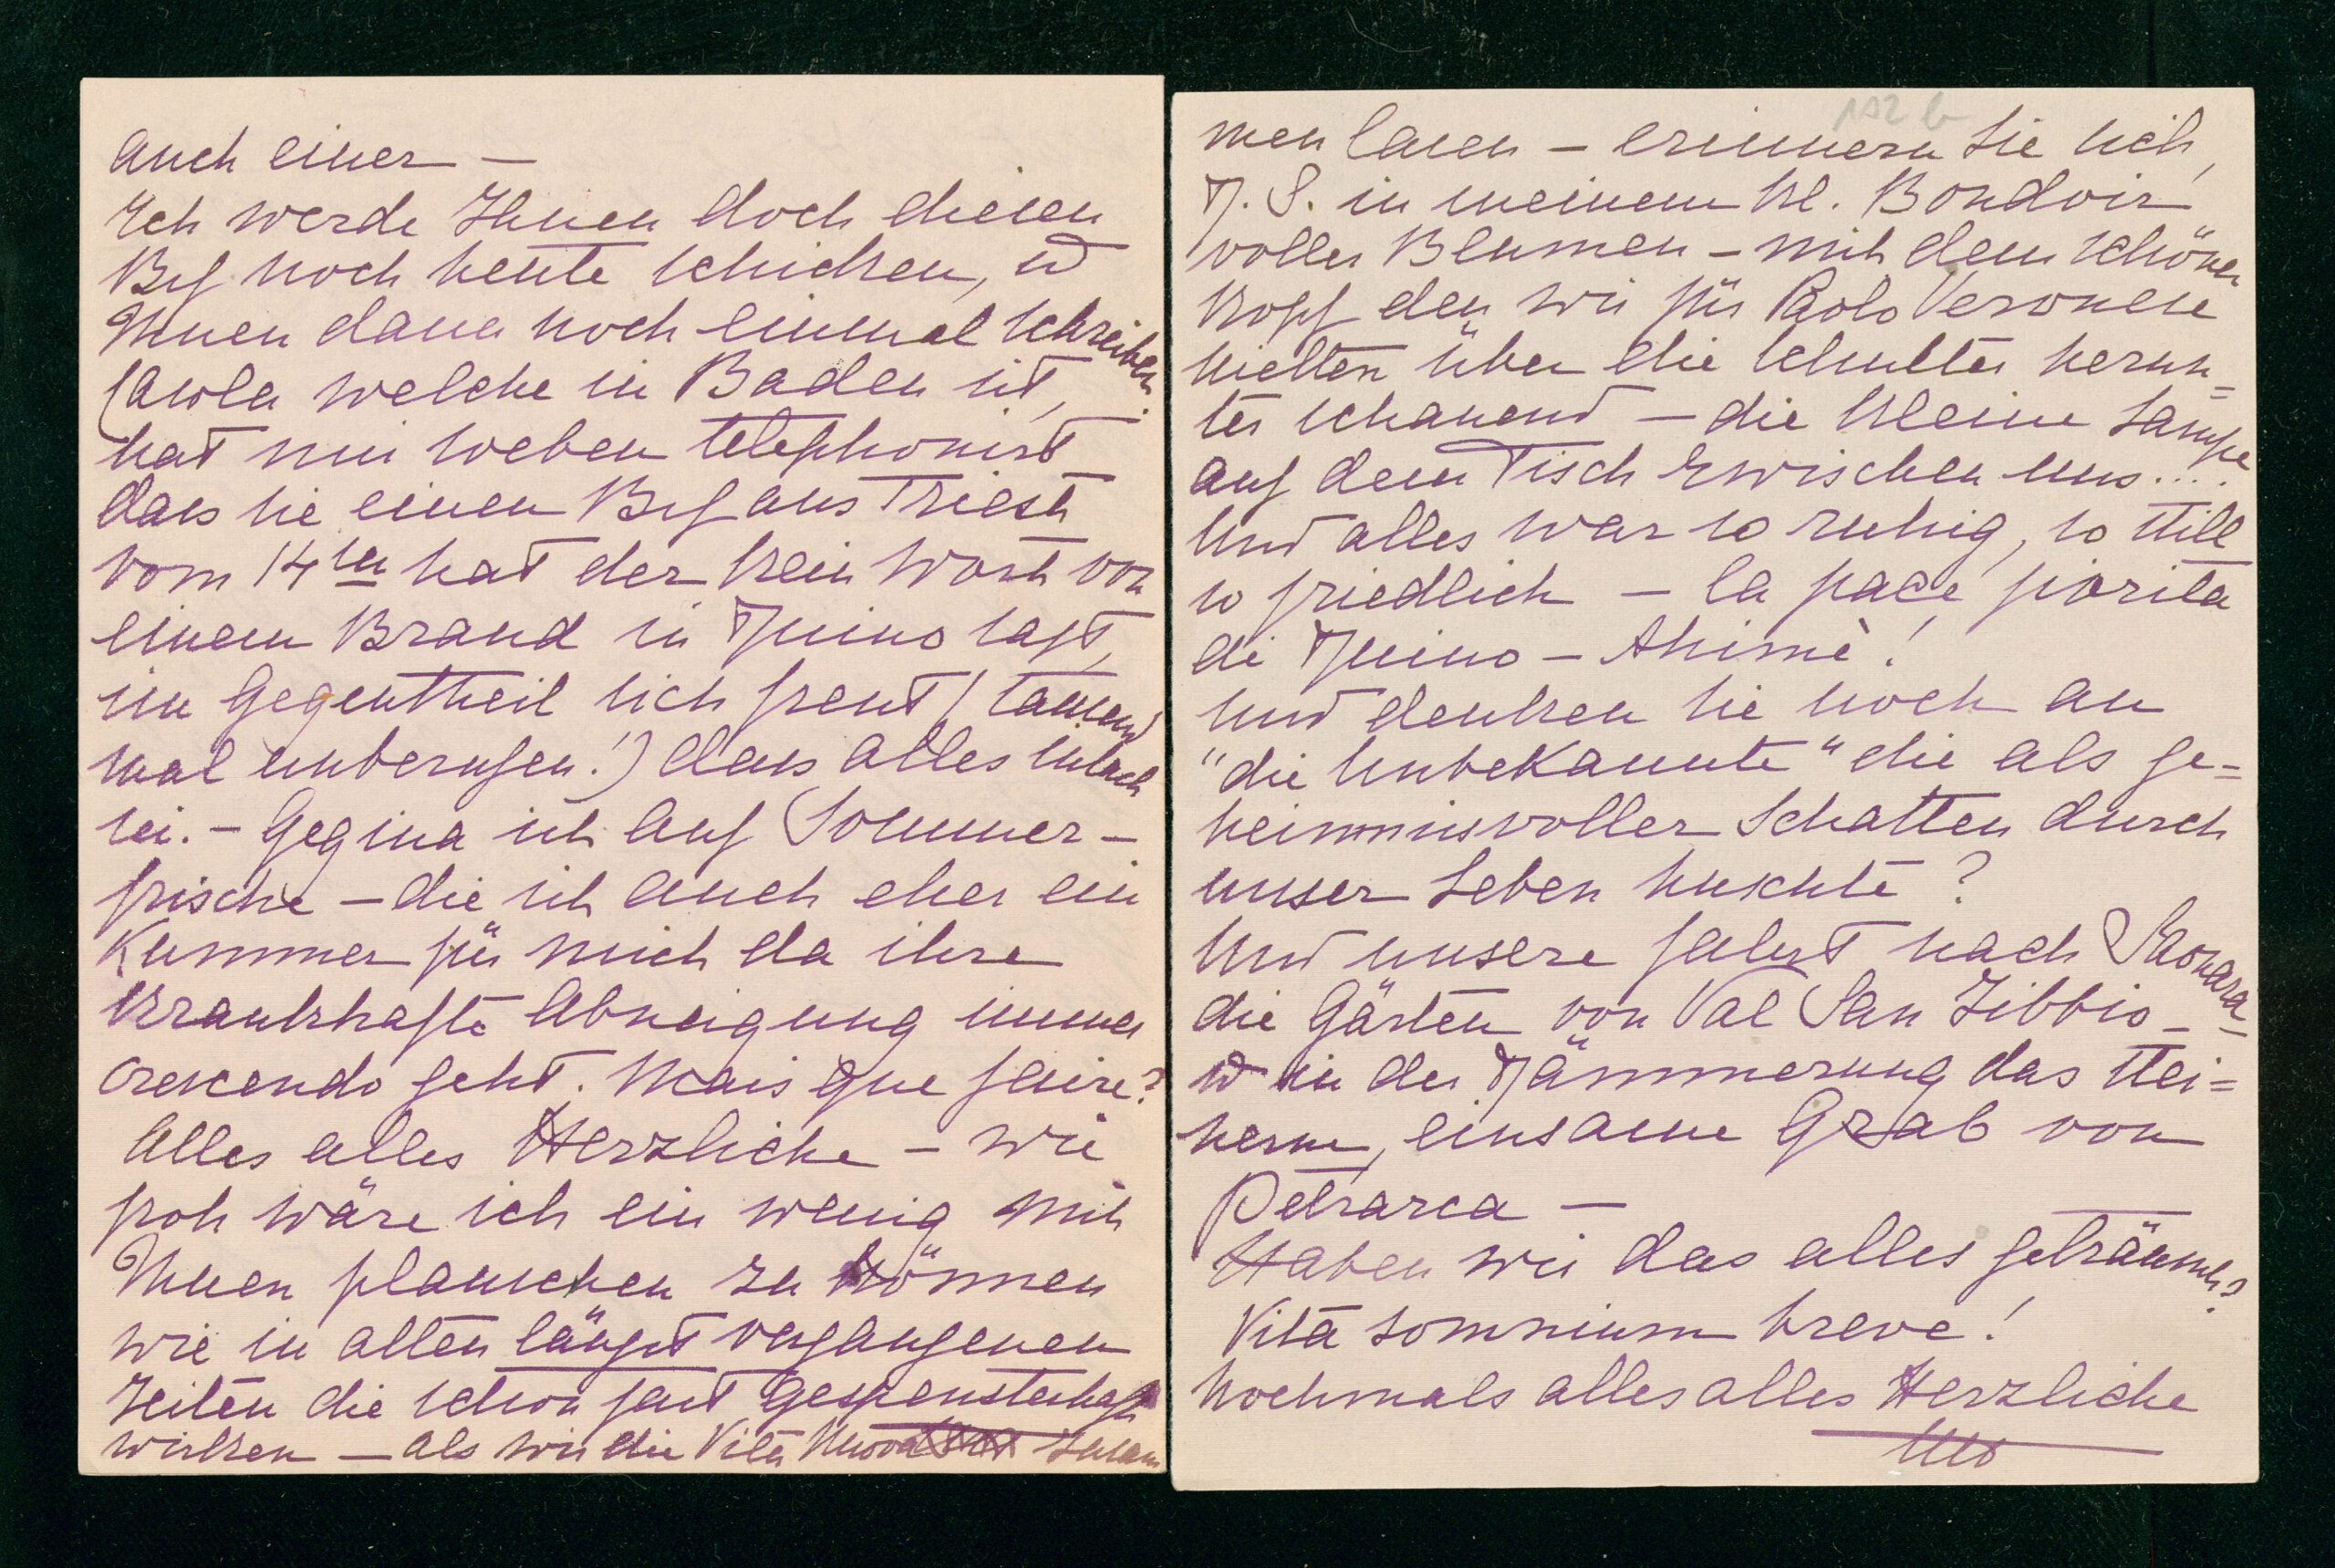 auch einer —
Ich werde Ihnen doch diesen
Brf noch heute schicken, u
Ihnen dann noch einmal schreiben.
Paola welche in Baden ist,
hat mir soeben telephonirt
dass sie einen Brf aus Triest
vom 14ten hat der kein Wort von
einem Brand in Duino sagt,
im Gegentheil sich freut (tausend
mal unberufen!) dass alles intact
sei. – Gegina ist auf Sommer–
frische – die ist auch eher ein
Kummer für mich da ihre
krankhafte Abneigung immer
crescendo geht. Mais que faire?
Alles alles Herzliche – wie
froh wäre ich ein wenig mit
Ihnen plauschen zu können
wie in alten längst vergangenen
Zeiten die schon fast gespensterhaft
wirken — als wir die Vita Nuova zusam
192 b
men lasen – erinnern Sie sich,
D. S. in meinem kl. Boudoir
voller Blumen – mit dem schönen
Kopf den wir für Paolo Veronese
hielten über die Schulter herun=
ter schauend – die kleine Lampe
auf dem Tisch zwischen uns....
Und alles war so ruhig, so still
so friedlich – la pace fiorita
di Duino – Ahimè!
Und denken Sie noch an
"die Unbekannte" die als ge=
heimnisvoller Schatten durch
unser Leben huschte?
Und unsere Fahrt nach Saonara–
die Gärten von Val San Zibbio –
u in der Dämmerung das stei=
nerne, einsame Grab von
Petrarca —
Haben wir das alles geträumt?
Vita somnium breve!
Nochmals alles alles Herzliche